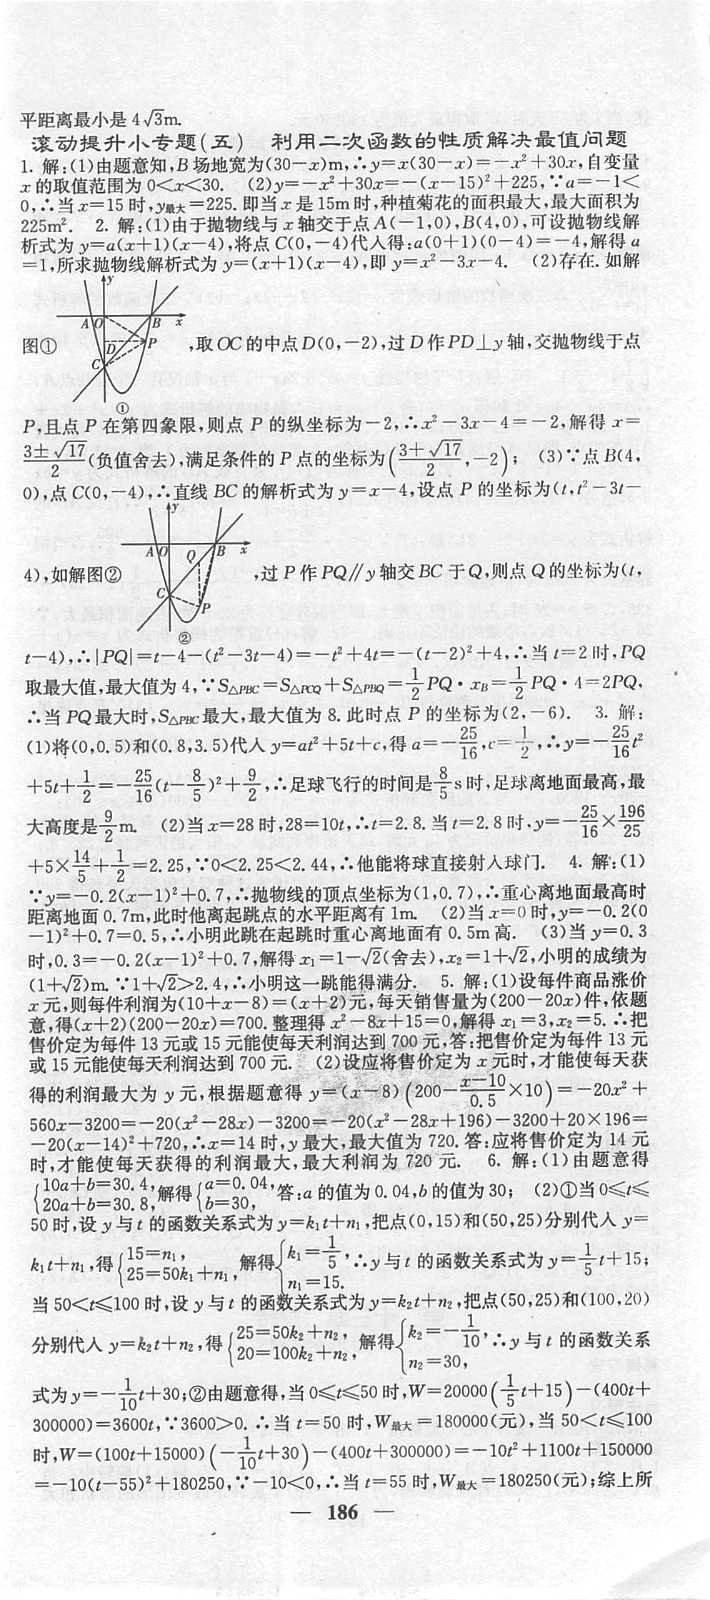 平距离最小是 4√3m.
滚动提升小专题(五) 利用二次函数的性质解决最值问题
1. 解:(1)由题意知,B场地宽为(30-x)m,∴y=x(30-x)=-x²+30x,自变量
x的取值范围为0<x<30. (2)y=-x²+30x=-(x-15)²+225,∵a=-1<
0,∴当x=15时,y最大=225.即当x是15m时,种植菊花的面积最大,最大面积为
225m². 2. 解:(1)由于抛物线与x轴交于点A(-1,0),B(4,0),可设抛物线解
析式为y=a(x+1)(x-4),将点C(0,-4)代入得:a(0+1)(0-4)=-4,解得a
=1,所求抛物线解析式为y=(x+1)(x-4),即y=x²-3x-4. (2)存在.如解
y
A O B x
图① D P ,取OC的中点D(0,-2),过D作PD⊥y轴,交抛物线于点
C
①
P,且点P在第四象限,则点P的纵坐标为-2,∴x²-3x-4=-2,解得x=
(3±√17)/2(负值舍去),满足条件的P点的坐标为((3+√17)/2,-2); (3)∵点B(4,
0),点C(0,-4),∴直线BC的解析式为y=x-4,设点P的坐标为(t,t²-3t-
y
A O Q B x
4),如解图② C P ,过P作PQ∥y轴交BC于Q,则点Q的坐标为(t,
②
t-4),∴|PQ|=t-4-(t²-3t-4)=-t²+4t=-(t-2)²+4,∴当t=2时,PQ
取最大值,最大值为4,∵S△PBC=S△PCQ+S△PBQ=1/2PQ·xB=1/2PQ·4=2PQ,
∴当PQ最大时,S△PBC最大,最大值为8.此时点P的坐标为(2,-6). 3. 解:
(1)将(0,0.5)和(0.8,3.5)代人y=at²+5t+c,得a=-25/16,c=1/2,∴y=-25/16t²
+5t+1/2=-25/16(t-8/5)²+9/2,∴足球飞行的时间是8/5s时,足球离地面最高,最
大高度是9/2m. (2)当x=28时,28=10t,∴t=2.8.当t=2.8时,y=-25/16×196/25
+5×14/5+1/2=2.25,∵0<2.25<2.44,∴他能将球直接射入球门. 4. 解:(1)
∵y=-0.2(x-1)²+0.7,∴抛物线的顶点坐标为(1,0.7),∴重心离地面最高时
距离地面0.7m,此时他离起跳点的水平距离有1m. (2)当x=0时,y=-0.2(0
-1)²+0.7=0.5,∴小明此跳在起跳时重心离地面有0.5m高. (3)当y=0.3
时,0.3=-0.2(x-1)²+0.7,解得x₁=1-√2(舍去),x₂=1+√2,小明的成绩为
(1+√2)m.∵1+√2>2.4,∴小明这一跳能得满分. 5. 解:(1)设每件商品涨价
x元,则每件利润为(10+x-8)=(x+2)元,每天销售量为(200-20x)件,依题
意,得(x+2)(200-20x)=700.整理得x²-8x+15=0,解得x₁=3,x₂=5.∴把
售价定为每件13元或15元能使每天利润达到700元,答:把售价定为每件13元
或15元能使每天利润达到700元. (2)设应将售价定为x元时,才能使每天获
得的利润最大为y元,根据题意得y=(x-8)(200-(x-10)/0.5×10)=-20x²+
560x-3200=-20(x²-28x)-3200=-20(x²-28x+196)-3200+20×196=
-20(x-14)²+720,∴x=14时,y最大,最大值为720.答:应将售价定为14元
时,才能使每天获得的利润最大,最大利润为720元. 6. 解:(1)由题意得
{10a+b=30.4, 20a+b=30.8, 解得{a=0.04, b=30, 答:a的值为0.04,b的值为30; (2)①当0≤t≤
50时,设y与t的函数关系式为y=k₁t+n₁,把点(0,15)和(50,25)分别代人y=
k₁t+n₁,得{15=n₁, 25=50k₁+n₁, 解得{k₁=1/5, n₁=15. ∴y与t的函数关系式为y=1/5t+15;
当50<t≤100时,设y与t的函数关系式为y=k₂t+n₂,把点(50,25)和(100,20)
分别代人y=k₂t+n₂,得{25=50k₂+n₂, 20=100k₂+n₂, 解得{k₂=-1/10, n₂=30, ∴y与t的函数关系
式为y=-1/10t+30;②由题意得,当0≤t≤50时,W=20000(1/5t+15)-(400t+
300000)=3600t,∵3600>0.∴当t=50时,W最大=180000(元),当50<t≤100
时,W=(100t+15000)(-1/10t+30)-(400t+300000)=-10t²+1100t+150000
=-10(t-55)²+180250,∵-10<0,∴当t=55时,W最大=180250(元);综上所
— 186 —